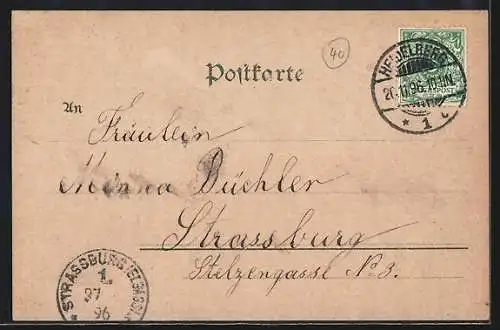 40
HEIDELBERG
26.11.96. 10-11N.
* 1 c
Postkarte
An
Fräulein
Minna Büchler
Strassburg
Stelzengasse No 3.
STRASSBURG (ELSASS)
1.
27
96